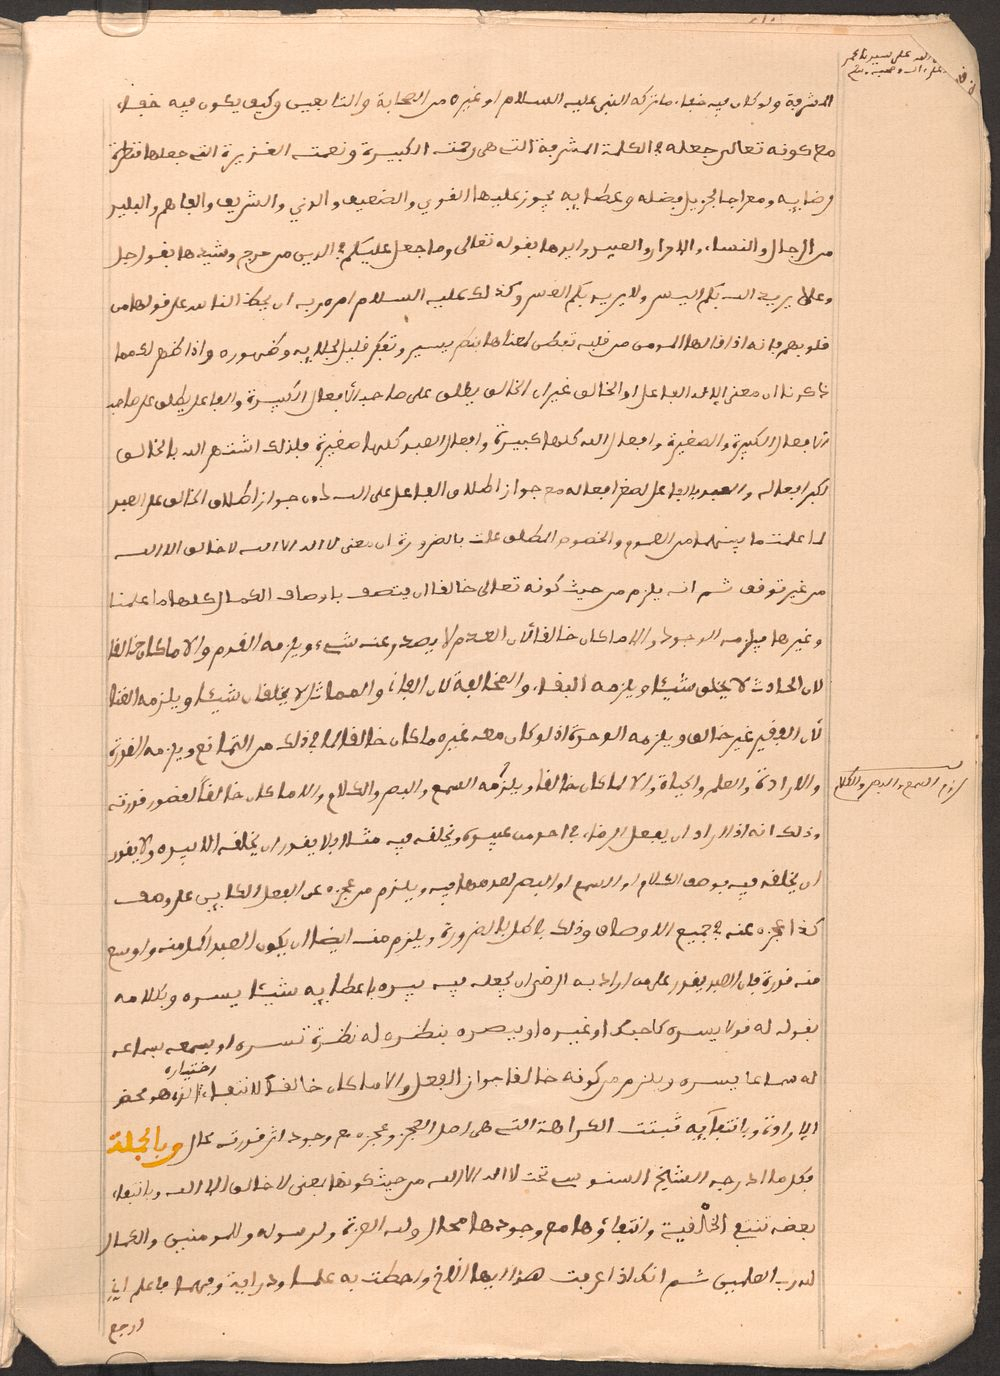 الله على سيدنا محمد
وعلى اله وصحبه وسلم
المشرفة ولو كان فيه خفاء ما تركه النبي عليه السلام او غيره من الصحابة والتابعين وكيف يكون فيه خفاء
مع كونه تعالى جعله في الكلمة المشرفة التي هي رحمته الكبيرة ونعمته الغزيرة التي جعلها قنطرة
رضايه ومعراجا لجزيل فضله وعطايه يجوز عليها القوي والضعيف والدني والشريف والفاهم والبليد
من الرجال والنساء والاحرار والعبيد وايدها بقوله تعالى وما جعل عليكم في الدين من حرج وشيدها بقوله جل
وعلا يريد الله بكم اليسر ولا يريد بكم العسر وكذلك عليه السلام امره ربه ان يحث الناس على قولها من
قلوبهم فانه اذا قالها المومن من قلبه تفطن لمعناها بنظر يسير وتفكر قليل لجلايه وظهوره واذا ظهر لك مما
ذكرنا ان معنى الاله الفاعل او الخالق غير ان الخالق يطلق على صاحب الأفعال الكبيرة والفاعل يطلق على صاحب
الأفعال الكبيرة والصغيرة وافعال الله كلها كبيرة وافعال العبد كلها صغيرة فلذلك اشتهر الله بالخالق
لكبر افعاله والعبد بالفاعل لصغر افعاله مع جواز اطلاق الفاعل على الله دون جواز اطلاق الخالق على العبد
لما علمت ما بينهما من العموم والخصوص المطلق علمت بالضرورة ان معنى لا اله الا الله لا خالق الا الله
من غير توقف ثم انه يلزم من حيث كونه تعالى خالقا ان يتصف باوصاف الكمال كلها ما علمنا
وغيرها فيلزمه الوجود والا ما كان خالقا لأن العدم لا يصدر عنه شيء ويلزمه القدم والا ما كان خالقا
لان الحادث لا يخلق شيئا ويلزمه البقاء والمخالفة لان الفاني والمماثل لا يخلقان شيئا ويلزمه الغنا
لأن الفقير غير خالق ويلزمه الوحدة اذ لو كان معه غيره ما كان خالقا لما في ذلك من التمانع ويلزمه القدرة
والارادة والعلم والحياة والا لما كان خالقا ويلزمه السمع والبصر والكلام والا ما كان خالقا لقصور قدرته
لزوم السمع والبصر والكلام
وذلك انه اذا اراد ان يفعل الرضاء في احد من عبيده ويخلقه فيه مثلا فلا يقدر ان يخلقه الا بيده ولا يقدر
ان يخلقه فيه بوصف الكلام او السمع او البصر لعدمها فيه ويلزم من عجزه عن الفعل الكاين على وصف
كذا عجزه عنه في جميع الاوصاف وذلك باطل بالضرورة ويلزم منه ايضا ان يكون العبد اكمل منه واوسع
منه قدرة فان العبد يقدر على من اراد به الرضى ان يجعله فيه بيده باعطايه شيئا يسره وبكلامه
بقوله له قولا يسره كاحبك او غيره او ببصره بنظره له نظرة تسره او بسمعه بسماعه
له سماعا يسره ويلزم من كونه خالقا جواز الفعل والا ما كان خالقا لانتفاء اختياره الذي هو محض
الارادة وبانتفآيه ثبتت الكراهة التي هي اصل العجز وعجزه مع وجود اثر قدرته محال وبالجملة
فكل ما ادرجه الشيخ السنوسي تحت لا اله الا الله من حيث كونها بمعنى لا خالق الا الله وبانتفاء
بعضه تنتفي الخالقية وانتفاؤها مع وجودها محال ولله العزة ولرسوله وللمومنين والكمال
لله رب العلمين ثم انك اذا عرفت هذا ايها الاخ واحطت به علما ودراية وفهما فاعلم اني
ارجع